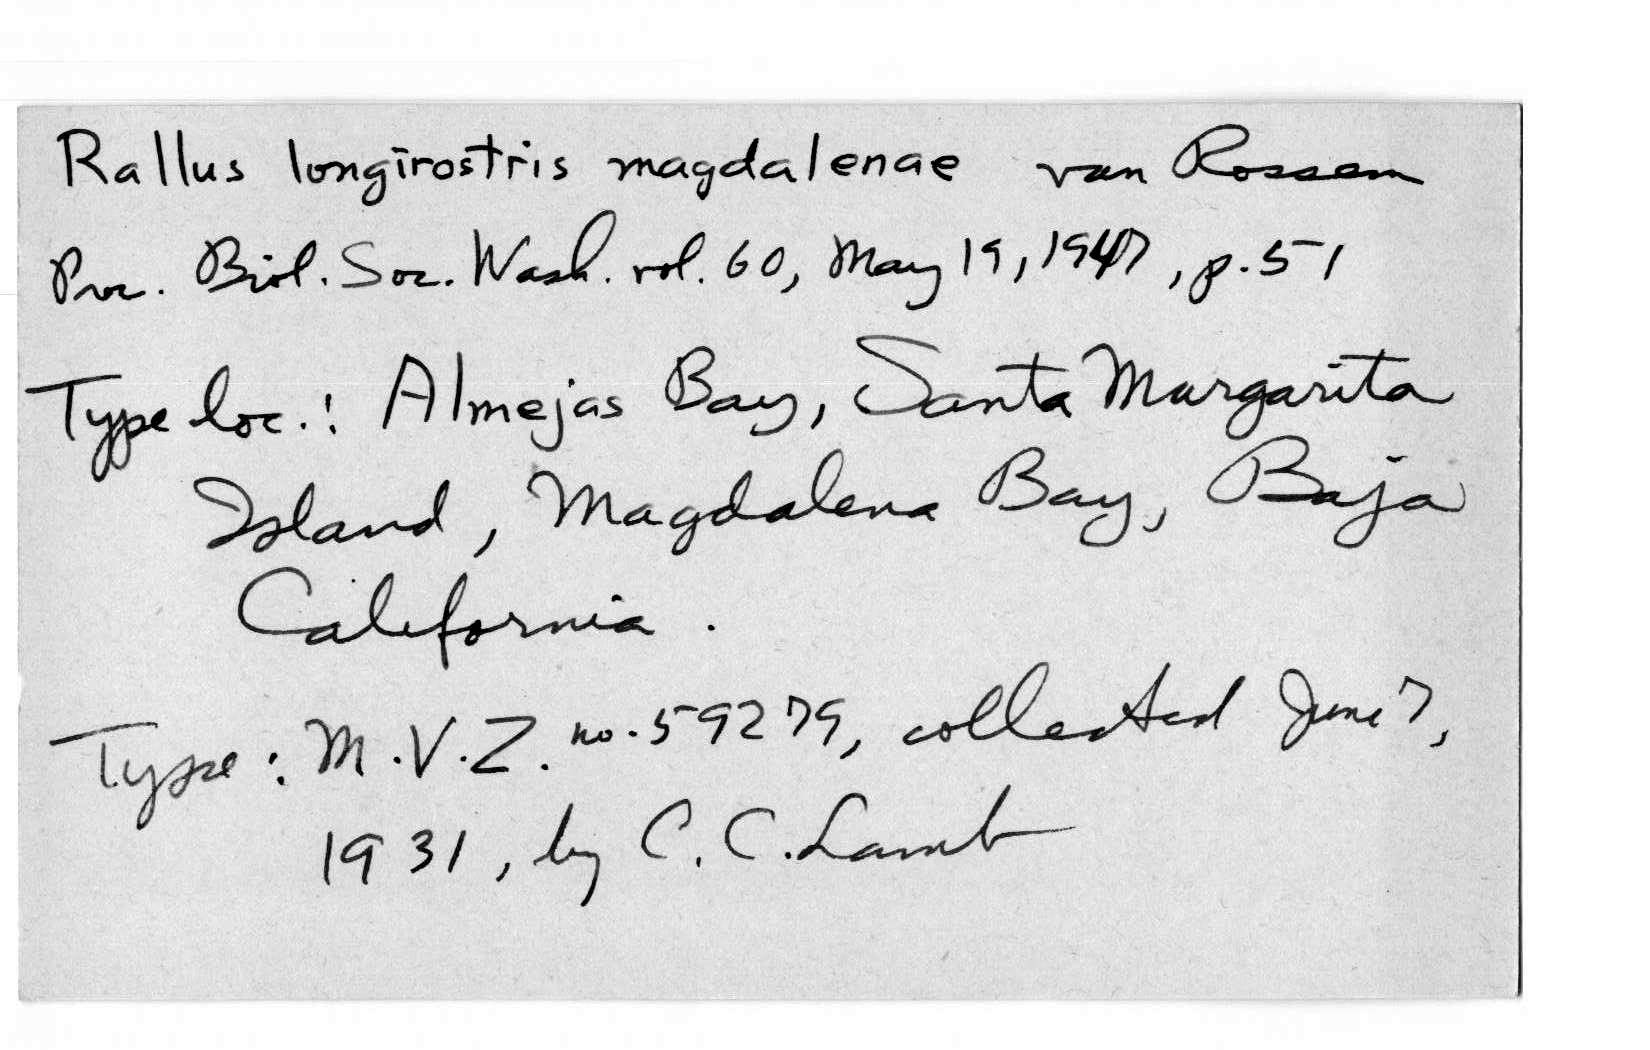 Rallus longirostris magdalenae van Rossem
Proc. Biol. Soc. Wash. vol. 60, May 19, 1947, p. 51
Type loc.: Almejas Bay, Santa Margarita
Island, Magdalena Bay, Baja
California.
Type: M.V.Z. no. 59279, collected June 7,
1931, by C. C. Lamb